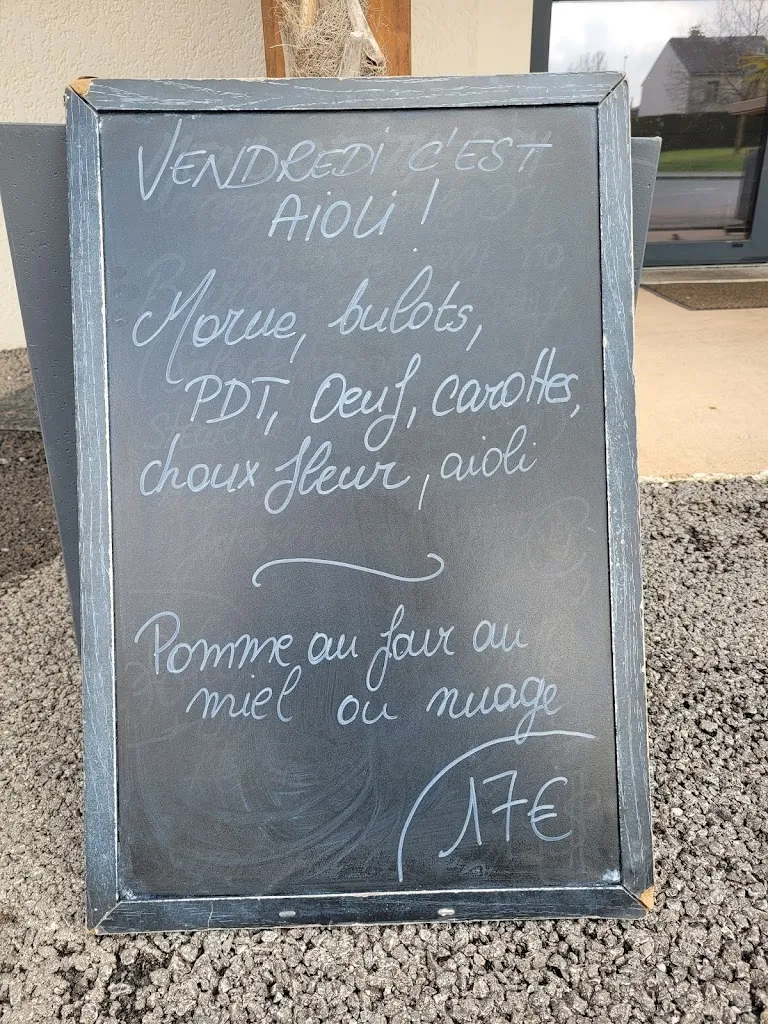 VENDREDi C'EST
AiOLi !
Morue, bulots,
PDT, Oeuf, carottes,
choux fleur, aioli
Pomme au four au
miel ou nuage
17€